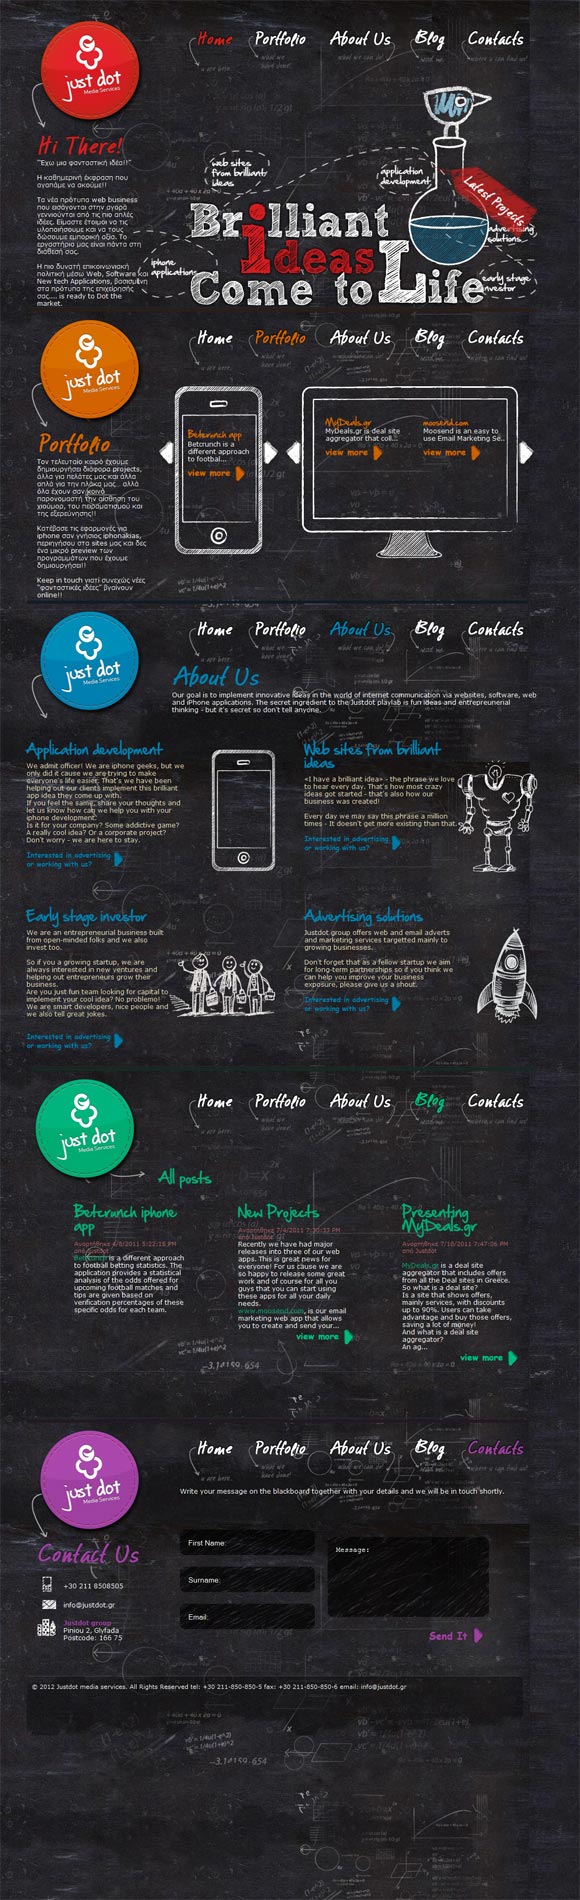 just dot
Media Services
Home Portfolio About Us Blog Contacts
Hi There!
"Έχω μια φανταστική ιδέα!!"
Η καθημερινή έκφραση που
αγαπάμε να ακούμε!!
Τα νέα πρότυπα web business
που εισάγονται στην αγορά
γεννιούνται από τις πιο απλές
ιδέες. Είμαστε έτοιμοι να τις
υλοποιήσουμε και να τους
δώσουμε εμπορική αξία. Το
εργαστήριο μας είναι πάντα στη
διάθεσή σας.
Η πιο δυνατή επικοινωνιακή
πολιτική μέσω Web, Software και
New tech Applications, βασισμένη
στα πρότυπα της επιχείρησής
σας.... is ready to Dot the
market.
web sites
from brilliant
ideas
application
development
Latest Projects
advertising
solutions
iphone
applications
early stage
investor
Brilliant
ideas
Come to Life
just dot
Media Services
Home Portfolio About Us Blog Contacts
Portfolio
Τον τελευταίο καιρό έχουμε
δημιουργήσει διάφορα projects,
άλλα για πελάτες μας και άλλα
απλά για την πλάκα μας... αλλά
όλα έχουν σαν κοινό
παρονομαστή την αίσθηση του
χιούμορ, του πειραματισμού και
της εξερεύνησης!!
Κατέβασε τις εφαρμογές για
iphone σαν γνήσιος iphonakias,
περιηγήσου στα sites μας και δες
ένα μικρό preview των
προγραμμάτων που έχουμε
δημιουργήσει!!
Keep in touch γιατί συνεχώς νέες
"φανταστικές ιδέες" βγαίνουν
online!!
Betcrunch app
Betcrunch is a
different approach
to footbal...
view more
MyDeals.gr
MyDeals.gr is deal site
aggregator that coll...
view more
moosend.com
Moosend is an easy to
use Email Marketing Se..
view more
just dot
Media Services
Home Portfolio About Us Blog Contacts
About Us
Our goal is to implement innovative ideas in the world of internet communication via websites, software, web
and iPhone applications. The secret ingredient to the Justdot playlab is fun ideas and entrepreunerial
thinking - but it's secret so don't tell anyone.
Application development
We admit officer! We are iphone geeks, but we
only did it cause we are trying to make
everyone's life easier. That's we have been
helping out our clients implement this brilliant
app idea they come up with.
If you feel the same, share your thoughts and
let us know how can we help you with your
iphone development.
Is it for your company? Some addictive game?
A really cool idea? Or a corporate project?
Don't worry - we are here to stay.
Interested in advertising
or working with us?
Web sites from brilliant
ideas
«I have a brilliant idea» - the phrase we love
to hear every day. That's how most crazy
ideas got started - that's also how our
business was created!
Every day we may say this phrase a million
times - It doesn't get more existing than that.
Interested in advertising
or working with us?
Early stage investor
We are an entrepreneurial business built
from open-minded folks and we also
invest too.
So if you a growing startup, we are
always interested in new ventures and
helping out entrepreneurs grow their
business.
Are you just fun team looking for capital to
implement your cool idea? No problemo!
We are smart developers, nice people and
we also tell great jokes.
Interested in advertising
or working with us?
Advertising solutions
Justdot group offers web and email adverts
and marketing services targetted mainly to
growing businesses.
Don't forget that as a fellow startup we aim
for long-term partnerships so if you think we
can help you improve your business
exposure, please give us a shout.
Interested in advertising
or working with us?
just dot
Media Services
Home Portfolio About Us Blog Contacts
All posts
Betcrunch iphone
app
Αναρτήθηκε 4/8/2011 5:22:18 PM
από Justdot
Betcrunch is a different approach
to football betting statistics. The
application provides a statistical
analysis of the odds offered for
upcoming football matches and
tips are given based on
verification percentages of these
specific odds for each team.
New Projects
Αναρτήθηκε 7/4/2011 7:30:33 PM
από Justdot
Recently we have had major
releases into three of our web
apps. This is great news for
everyone! For us cause we are
so happy to release some great
work and of course for all you
guys that you can start using
these apps for all your daily
needs.
www.moosend.com, is our email
marketing web app that allows
you to create and send your...
view more
Presenting
MyDeals.gr
Αναρτήθηκε 7/10/2011 7:47:06 PM
από Justdot
MyDeals.gr is a deal site
aggregator that includes offers
from all the Deal sites in Greece.
So what is a deal site?
Is a site that shows offers,
mainly services, with discounts
up to 90%. Users can take
advantage and buy those offers,
saving a lot of money!
And what is a deal site
aggregator?
An ag...
view more
just dot
Media Services
Home Portfolio About Us Blog Contacts
Write your message on the blackboard together with your details and we will be in touch shortly.
Contact Us
+30 211 8508505
info@justdot.gr
Justdot group
Piniou 2, Glyfada
Postcode: 166 75
First Name:
Surname:
Email:
Message:
Send It
© 2012 Justdot media services. All Rights Reserved tel: +30 211-850-850-5 fax: +30 211-850-850-6 email: info@justdot.gr